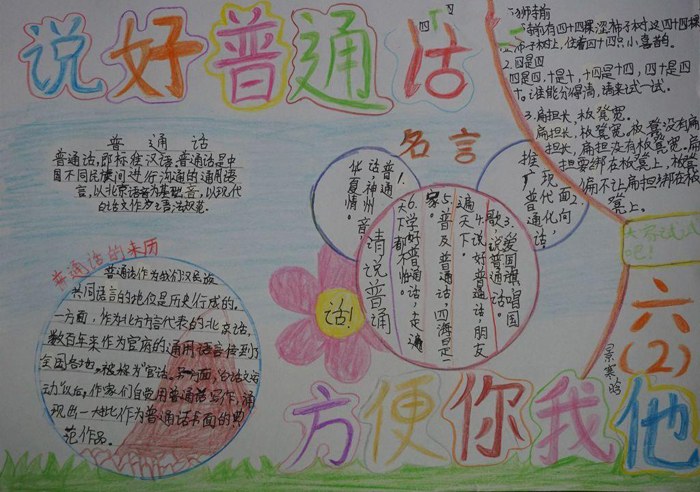 说好普通话
普通话
普通话,即标准汉语。普通话是中
国不同民族间进行沟通的通用语
言,以北京语音为基础音,以现代
白话文作为
普通话的来历
普通话作为我们汉民族
共同语言的地位是历史形成的,
一方面,作为北方方言代表的北京话,
数百年来作为官府的通用语言传到了
全国各地。被称为"官话。另一方面,白话文运
动"以后,作家们自觉用普通话写作,涌
现出一大批作为普通话书面的典
范作品。
名言
1.普通
话,神州音,
华夏情。
2.面向
现代化,
推广普通话
3.爱国旗,唱国
歌,说普通话。
4.说好普通话,朋友
遍天下
5.普及普通话,四海是一
家。
6.学好普通话,走遍
天下都不怕。
请说普通
话!
四是四
四是四,十是十,十四是十四,四十是四
十。谁能分得清,请来试一试。
3.扁担长,板凳宽。
扁担长,板凳宽。板凳没有扁
担长,扁担没有板凳宽。扁
担要绑在板凳上,板凳
偏不让扁担绑在板
凳上。
大家试试
吧!
六
(2)
方便你我他